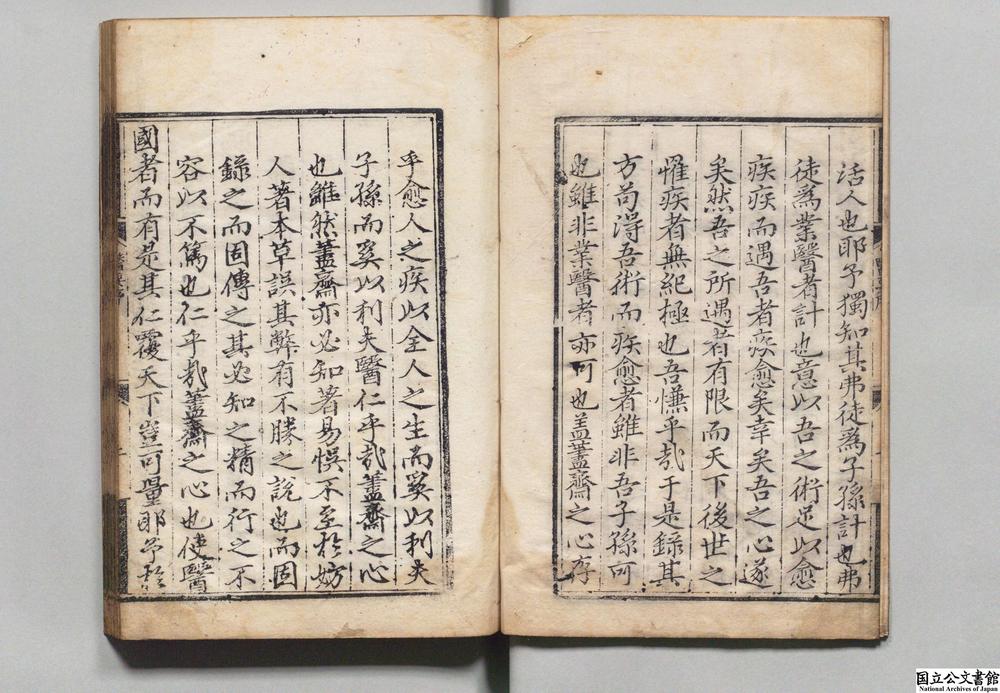 活人也耶予獨知其弗徒爲子孫計也弗
徒爲業醫者計也意以吾之術足以愈
疾疾而遇吾者疾愈矣幸矣吾之心遂
矣然吾之所遇者有限而天下後世之
罹疾者無紀極也吾慊乎哉于是錄其
方苟得吾術而疾愈者雖非吾子孫可
也雖非業醫者亦可也盖藎齋之心存
乎愈人之疾以全人之生而奚以利夫
子孫而奚以利夫醫仁乎哉藎齋之心
也雖然藎齋亦必知著易悞不至於妨
人著本草誤其弊有不勝之說也而固
錄之而固傳之其必知之精而行之不
容以不篤也仁乎哉藎齋之心也使醫
國者而有是其仁覆天下豈可量耶予於
国立公文書館
National Archives of Japan